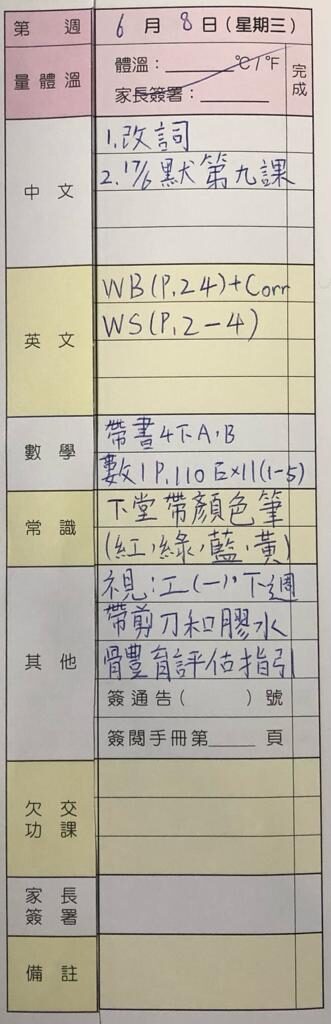 第 週 6 月 8 日(星期三)
量體溫 體溫:______℃/℉ 完成
家長簽署:______
中文 1.改詞
2.17/6 默第九課
英文 WB(P.24)+Corr
WS(P.2-4)
數學 帶書4下A,B
數1 P.110 Ex11(1-5)
常識 下堂帶顏色筆
(紅,綠,藍,黃)
其他 視:工(一),下週
帶剪刀和膠水
體育評估指引
簽通告( )號
簽閱手冊第______頁
欠交功課
家長簽署
備註